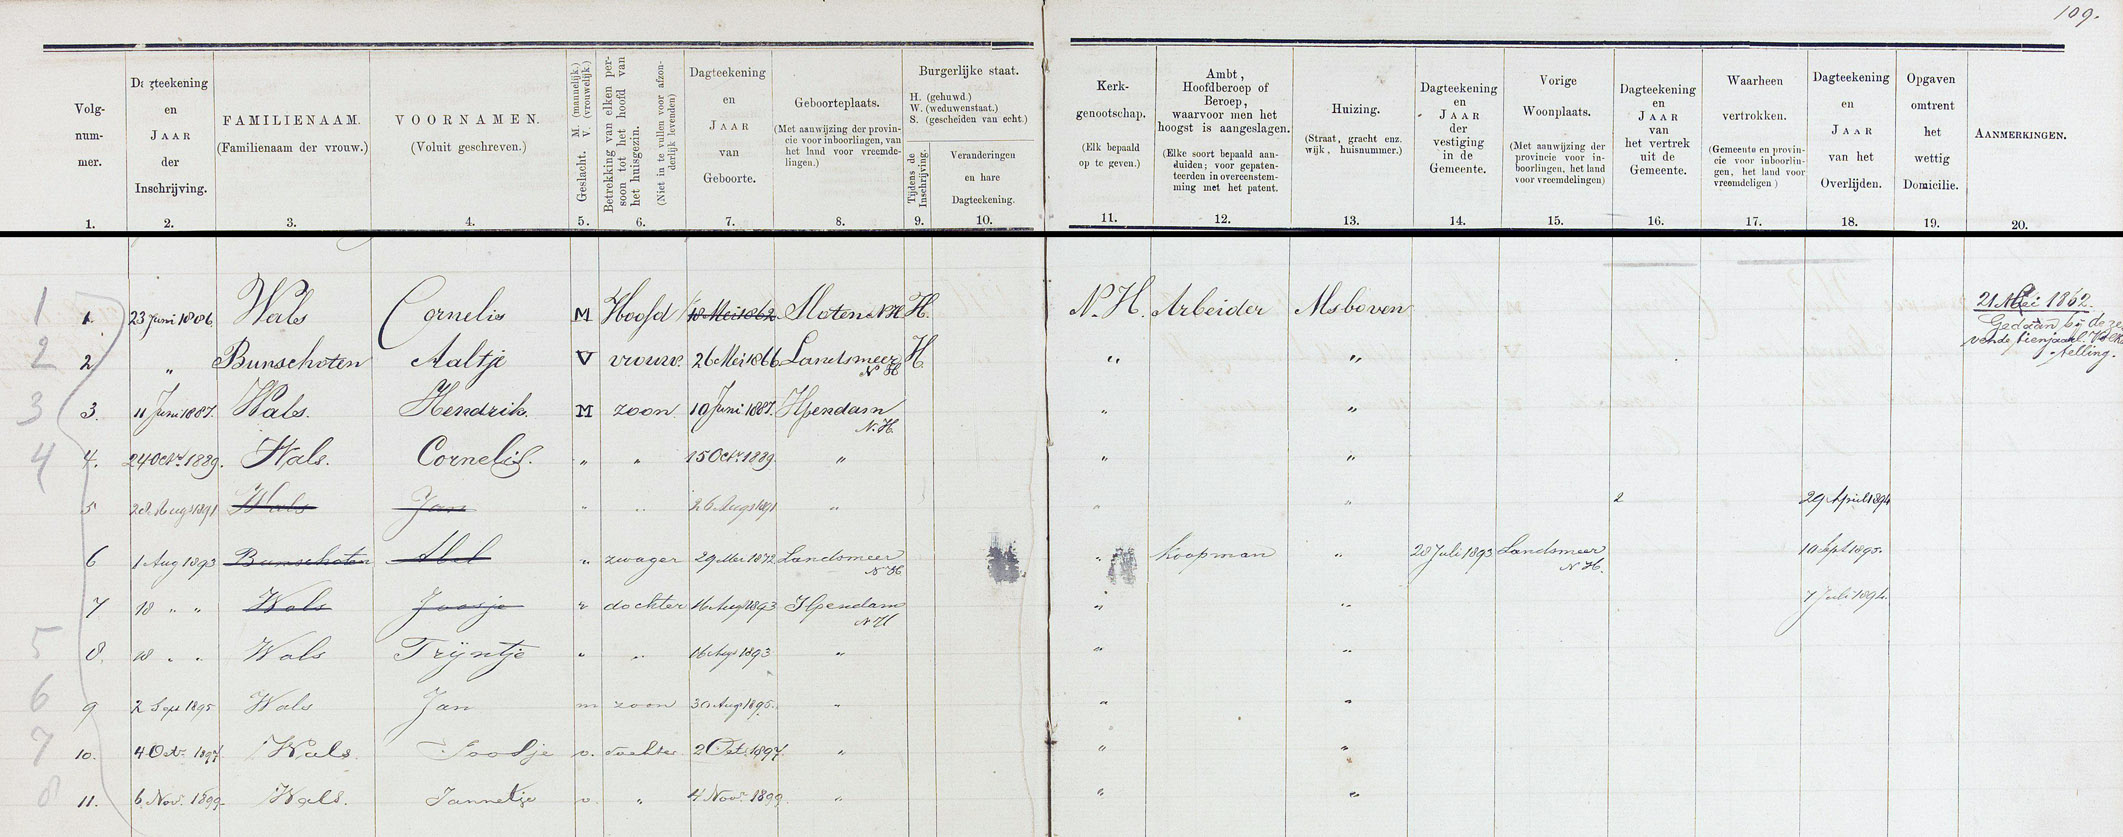 109.
Volg-
num-
mer.
1.
Dagteekening
en
JAAR
der
Inschrijving.
2.
FAMILIENAAM.
(Familienaam der vrouw.)
3.
VOORNAMEN.
(Voluit geschreven.)
4.
Geslacht. M. (mannelijk.)
V. (vrouwelijk.)
5.
Betrekking van elken per-
soon tot het hoofd van
het huisgezin.
(Niet in te vullen voor afzon-
derlijk levenden)
6.
Dagteekening
en
JAAR
van
Geboorte.
7.
Geboorteplaats.
(Met aanwijzing der provin-
cie voor inboorlingen, van
het land voor vreemde-
lingen.)
8.
Burgerlijke staat.
H. (gehuwd.)
W. (weduwenstaat.)
S. (gescheiden van echt.)
Tijdens de
Inschrijving.
9.
Veranderingen
en hare
Dagteekening.
10.
Kerk-
genootschap.
(Elk bepaald
op te geven.)
11.
Ambt,
Hoofdberoep of
Beroep,
waarvoor men het
hoogst is aangeslagen.
(Elke soort bepaald aan-
duiden; voor gepaten-
teerden in overeenstem-
ming met het patent.
12.
Huizing.
(Straat, gracht enz.
wijk, huisnummer.)
13.
Dagteekening
en
JAAR
der
vestiging
in de
Gemeente.
14.
Vorige
Woonplaats.
(Met aanwijzing der
provincie voor in-
boorlingen, het land
voor vreemdelingen)
15.
Dagteekening
en
JAAR
van
het vertrek
uit de
Gemeente.
16.
Waarheen
vertrokken.
(Gemeente en provin-
cie voor inboorlin-
gen, het land voor
vreemdeligen)
17.
Dagteekening
en
JAAR
van het
Overlijden.
18.
Opgaven
omtrent
het
wettig
Domicilie.
19.
AANMERKINGEN.
20.
1 1. 23 Juni 1886 Wals Cornelis M Hoofd 18 Mei 1862 Sloten N.H H. N. H. Arbeider Ilsboven 21 Mei 1862.
Gedaan bij de ze-
vende tienjaarl. Volks
telling.
2 2 „ Bunschoten Aaltje V vrouw. 26 Mei 1866 Landsmeer N H H. „ „
3 3. 11 Juni 1887. Wals. Hendrik. M zoon. 10 Juni 1887. Ilpendam N. H. „ „
4 4. 24 Octr. 1889. Wals. Cornelis. „ „ 15 Octr. 1889. „ „ „
5 28 Augs 1891 Wals Jan „ „ 26 Augs 1891 „ „ „ 2 29 April 1894
6 1 Aug 1893 Bunschoten Abel „ zwager 29 Mei 1872 Landsmeer N H „ koopman „ 28 Juli 1893 Landsmeer N H. 10 Sept 1895.
7 18 „ „ Wals Joosje v dochter 16 Augs 1893 Ilpendam N H „ „ 7 Juli 1894.
5 8. 18 „ „ Wals Trijntje „ „ 16 Augs 1893 „ „ „
6 9 2 Sept 1895 Wals Jan m zoon 30 Augs 1895. „ „ „
7 10. 4 Octr. 1897. Wals. Joosje v. dochter. 2 Oct. 1897. „ „ „
8 11. 6 Nov. 1899. Wals. Jannetje v. „ 4 Novr. 1899. „ „ „